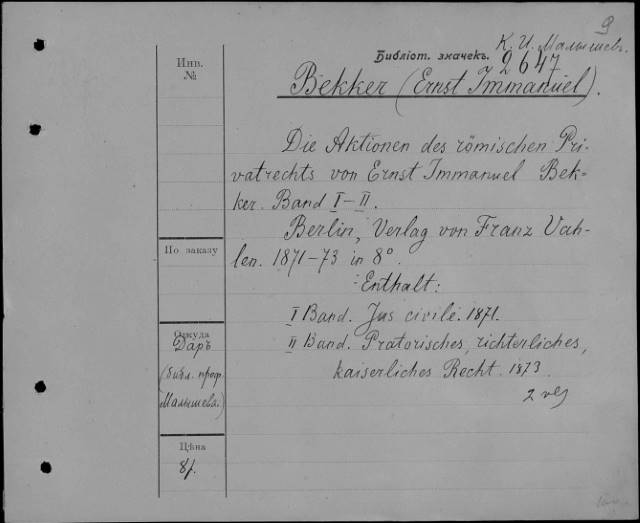 9
К. И. Малышев.
Библіот. значекъ.
2647
Инв.
№
Bekker (Ernst Immanuel).
Die Aktionen des römischen Pri-
vatrechts von Ernst Immanuel Bek-
ker. Band I–II.
Berlin, Verlag von Franz Vah-
len. 1871–73 in 8°
Enthalt:
I Band. Jus civile. 1871.
II Band. Pratorisches, richterliches,
kaiserliches Recht. 1873.
2 vol
По заказу
Откуда
Даръ
(библ. проф.
Малышева.)
Цѣна
8р.